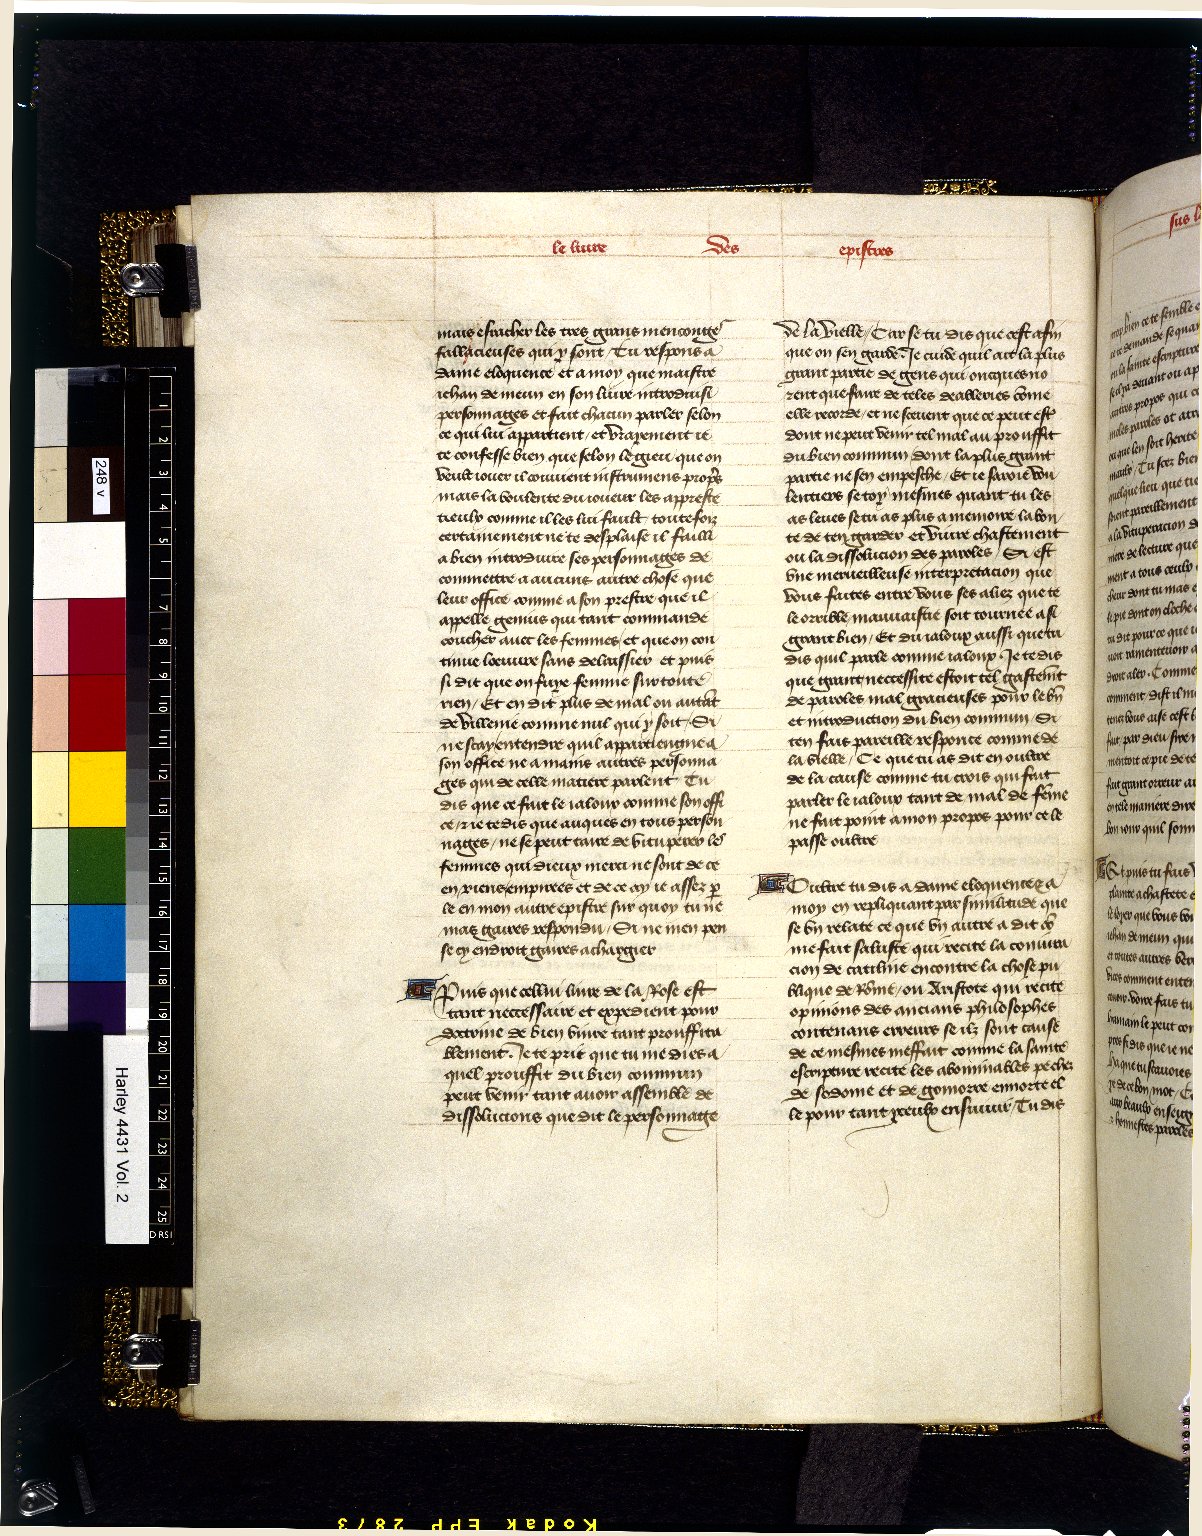 le livre des epistres
mais esracher les tres grans mencongez
fallacieuses qui y sont / Tu respons a
dame eloquence et a moy que maistre
iehan de meun en son livre introduisi
personnages et fait chacun parler selon
ce qui lui appartient / et vrayement ie
te confesse bien que selon le gieu que on
veult iouer il couvient instrumens propres
mais la voulente du ioueur les appreste
tieulx comme il les lui fault toutefoiz
certainement ne te desplaise il failli
a bien introduire ses personnages de
commettre a aucuns autre chose que
leur office comme a son prestre que il
appelle genius qui tant commande
coucher avec les femmes / et que on con
tinue loeuvre sans delaissier et puis
si dit que on fuye femme sur toute
rien / Et en dit plus de mal ou autant
de villenie comme nul qui y soit / Si
ne scay entendre quil appartiengne a
son office ne a mains autres personna
ges qui de celle matiere parlent Tu
dis que ce fait le ialoux comme son offi
ce / Je te dis que auques en tous person
nages / ne se peut taire de vituperer les
femmes qui dieux merci ne sont de ce
en riens empirees et de ce ay ie assez p
le en mon autre epistre sur quoy tu ne
mas gaires respondu / Si ne men pen
se cy endroit gaires achargier
Puis que cellui livre de la Rose est
tant neccessaire et expedient pour
doctrine de bien vivre tant prouffita
blement. Je te prie que tu me dies a
quel prouffit du bien commun
peut venir tant avoir assemble de
dissolucions que dit le personnage
de la vielle / Car se tu dis que cest afin
que on sen garde. Je cuide quil ait la plus
grant partie de gens qui oncques no
rent que faire de teles deableries comme
elle recorde / et ne scevent que ce peut est
dont ne peut venir tel mal au prouffit
du bien commun dont la plus grant
partie ne sen empesche / Et ie savroie vou
lentiers se toy mesmes quant tu les
as leues se tu as plus a memoire la bon
te de ten garder et vivre chastement
ou la dissolucion des paroles / Si est
une merveilleuse interpretacion que
vous faites entre vous ses aliez que te
le orrible mauvaistie soit tournee a si
grant bien / Et du ialoux aussi que tu
dis quil parle comme ialoux. Je te dis
que grant neccessite estoit tel gastement
de paroles mal gracieuses pour le bn
et introduction du bien commun / Si
ten fais pareille responce comme de
la vielle / Ce que tu as dit en oultre
de la cause comme tu crois qui fait
parler le ialoux tant de mal de feme
ne fait point a mon propos pour ce le
passe oultre
Oultre tu dis a dame eloquence et a
moy en repliquant par similitude que
se un relate ce que un autre a dit co
me fait saluste qui recite la coniura
cion de catiline encontre la chose pu
blique de Rome / ou Aristote qui recite
opinions des ancians philosophes
contenans erreurs se ilz sont cause
de ce mesmes meffait comme la sainte
escripture recite les abominables pechez
de sodome et de gomorre ennorte el
le pour tant yceulx ensuivir Tu dis
248 v
Harley 4431 Vol. 2
1 2 3 4 5 6 7 8 9 10 11 12 13 14 15 16 17 18 19 20 21 22 23 24 25
Kodak EPP 2873